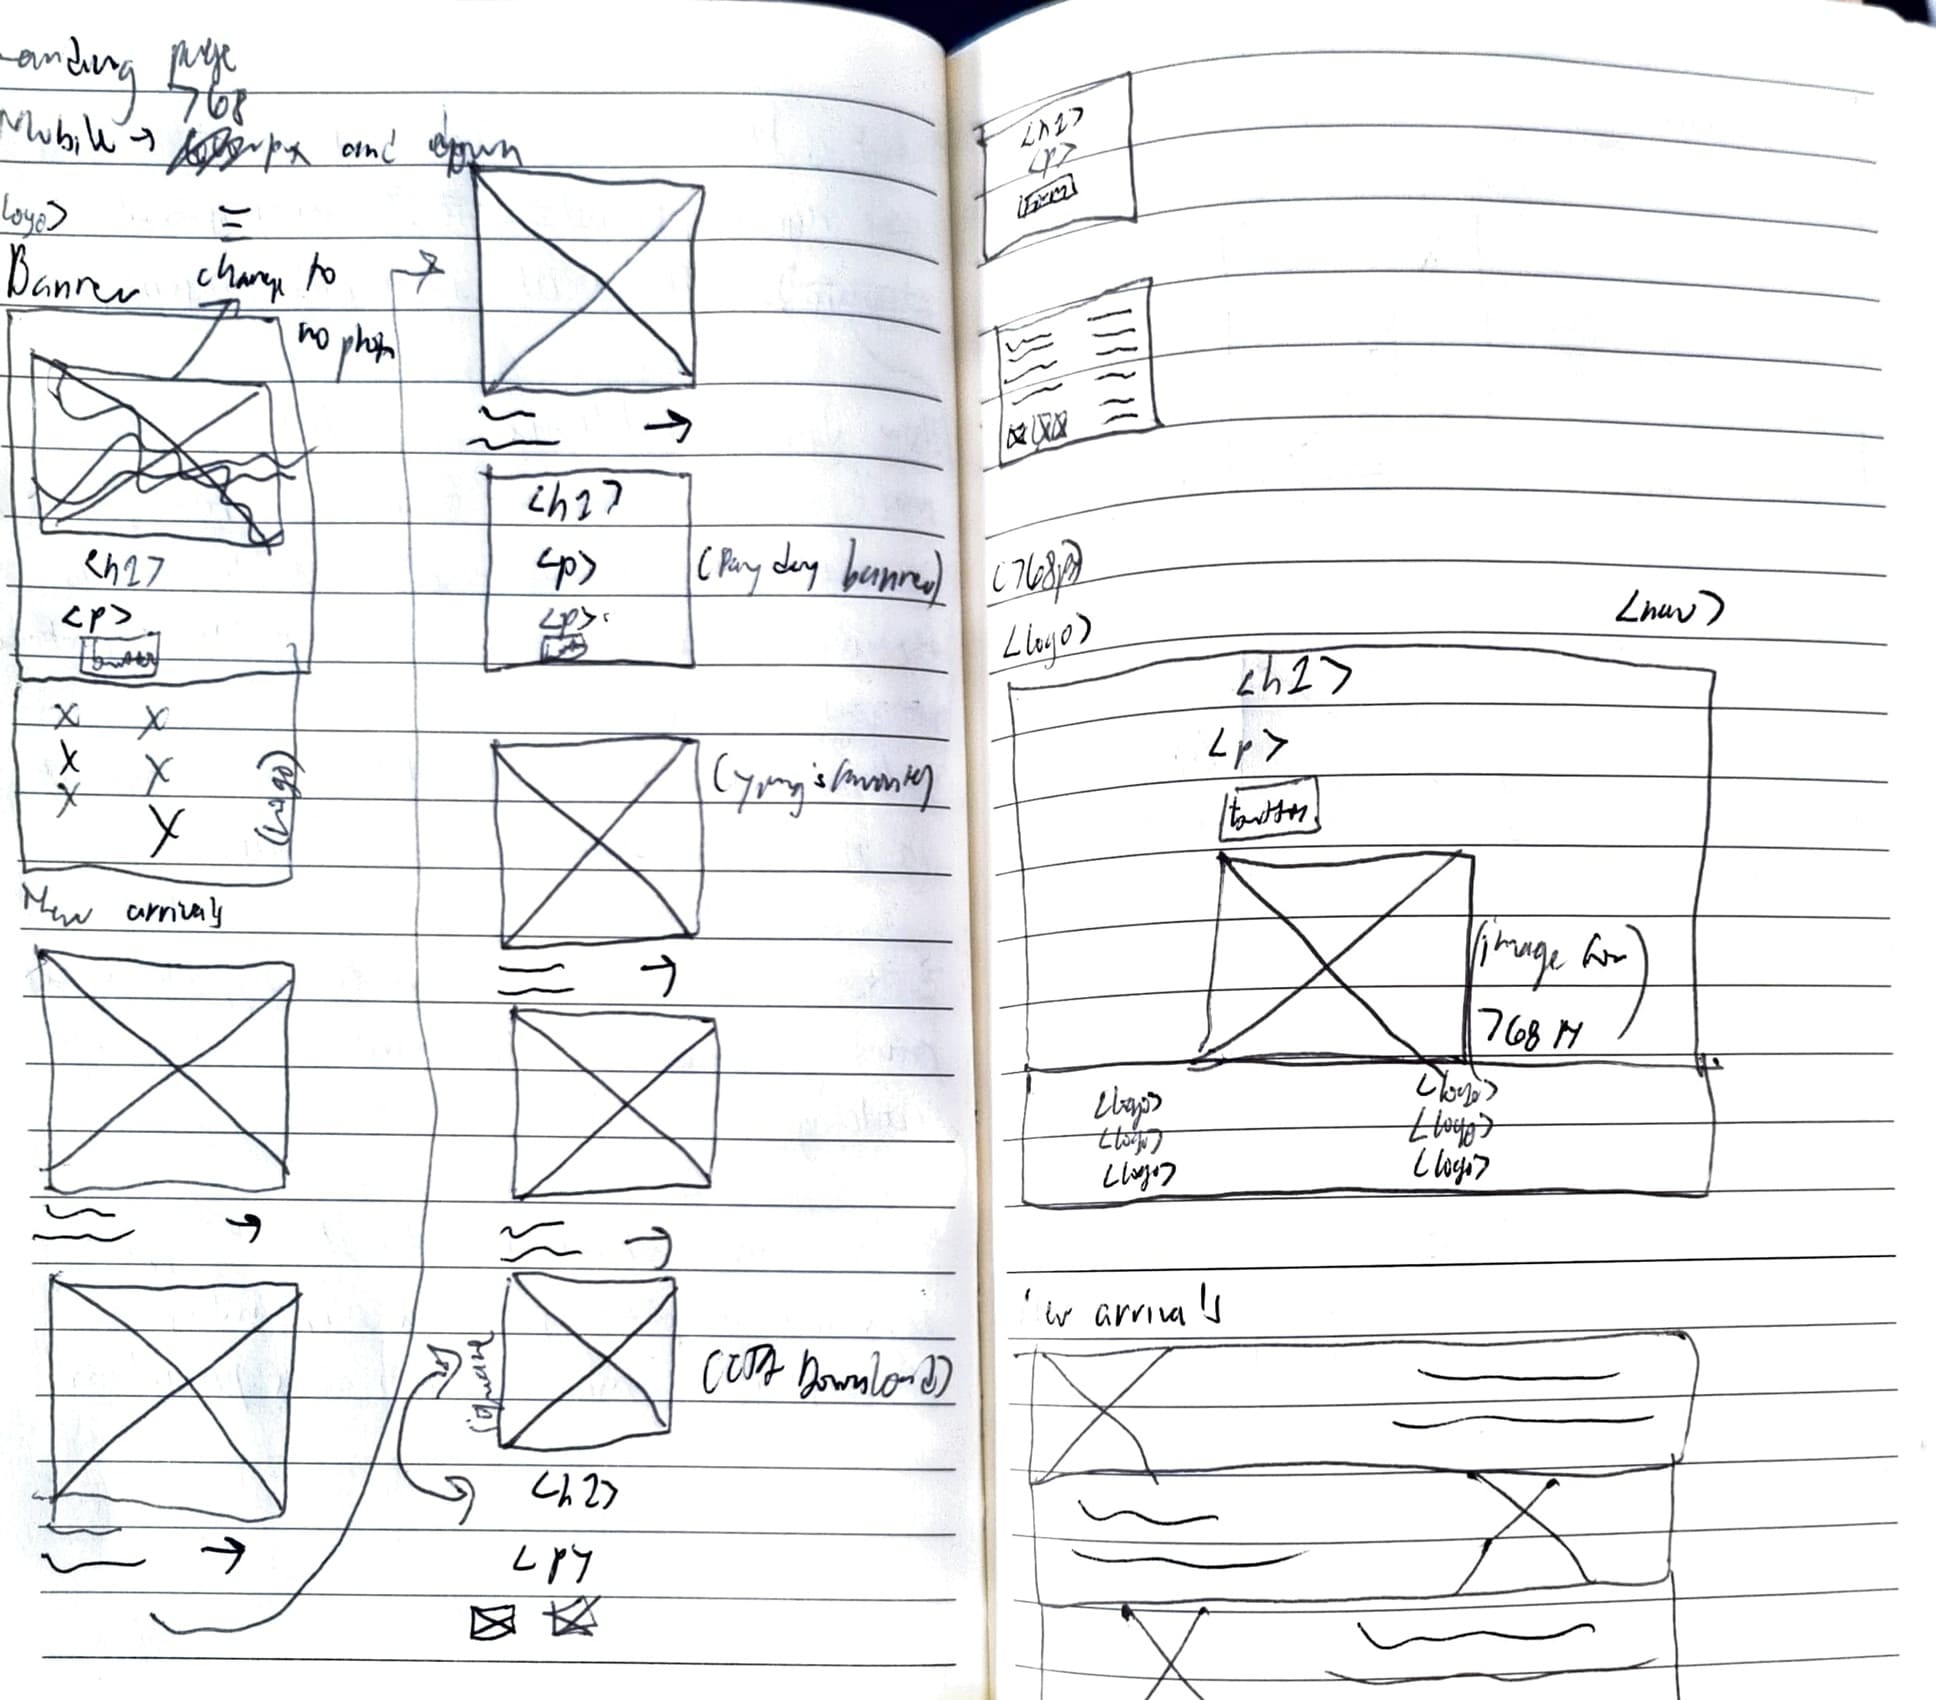 Landing page
768
Mobile → px and down
logo>
Banner
change to
no photo
<h1>
<p>
button
x x
x x
x x
(logo)
New arrivals
→
→
→
<h1>
<p>
<p>
(Payday banner)
→
→
(CTA Download)
(square
<h2>
<p>
<h2>
<p>
(768px)
<logo>
<nav>
<h1>
<p>
button
(image for
768 px
)
<logo> <logo>
<logo> <logo>
<logo> <logo>
arrivals